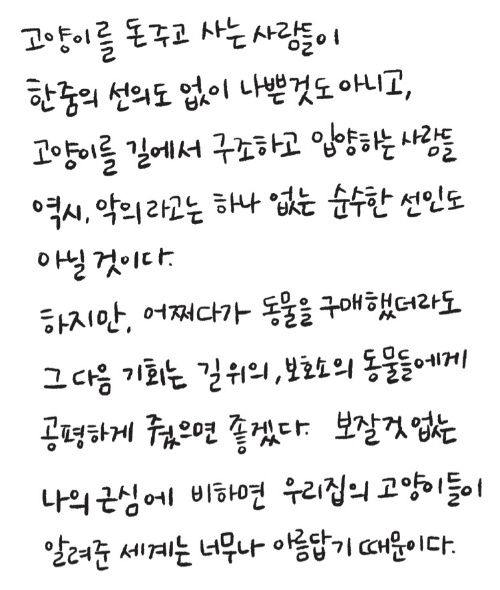 고양이를 돈주고 사는 사람들이
한줌의 선의도 없이 나쁜것도 아니고,
고양이를 길에서 구조하고 입양하는 사람들
역시, 악의라고는 하나 없는 순수한 선인도
아닐 것이다.
하지만, 어쩌다가 동물을 구매했더라도
그 다음 기회는 길 위의, 보호소의 동물들에게
공평하게 줬으면 좋겠다. 보잘것 없는
나의 근심에 비하면 우리집의 고양이들이
알려준 세계는 너무나 아름답기 때문이다.